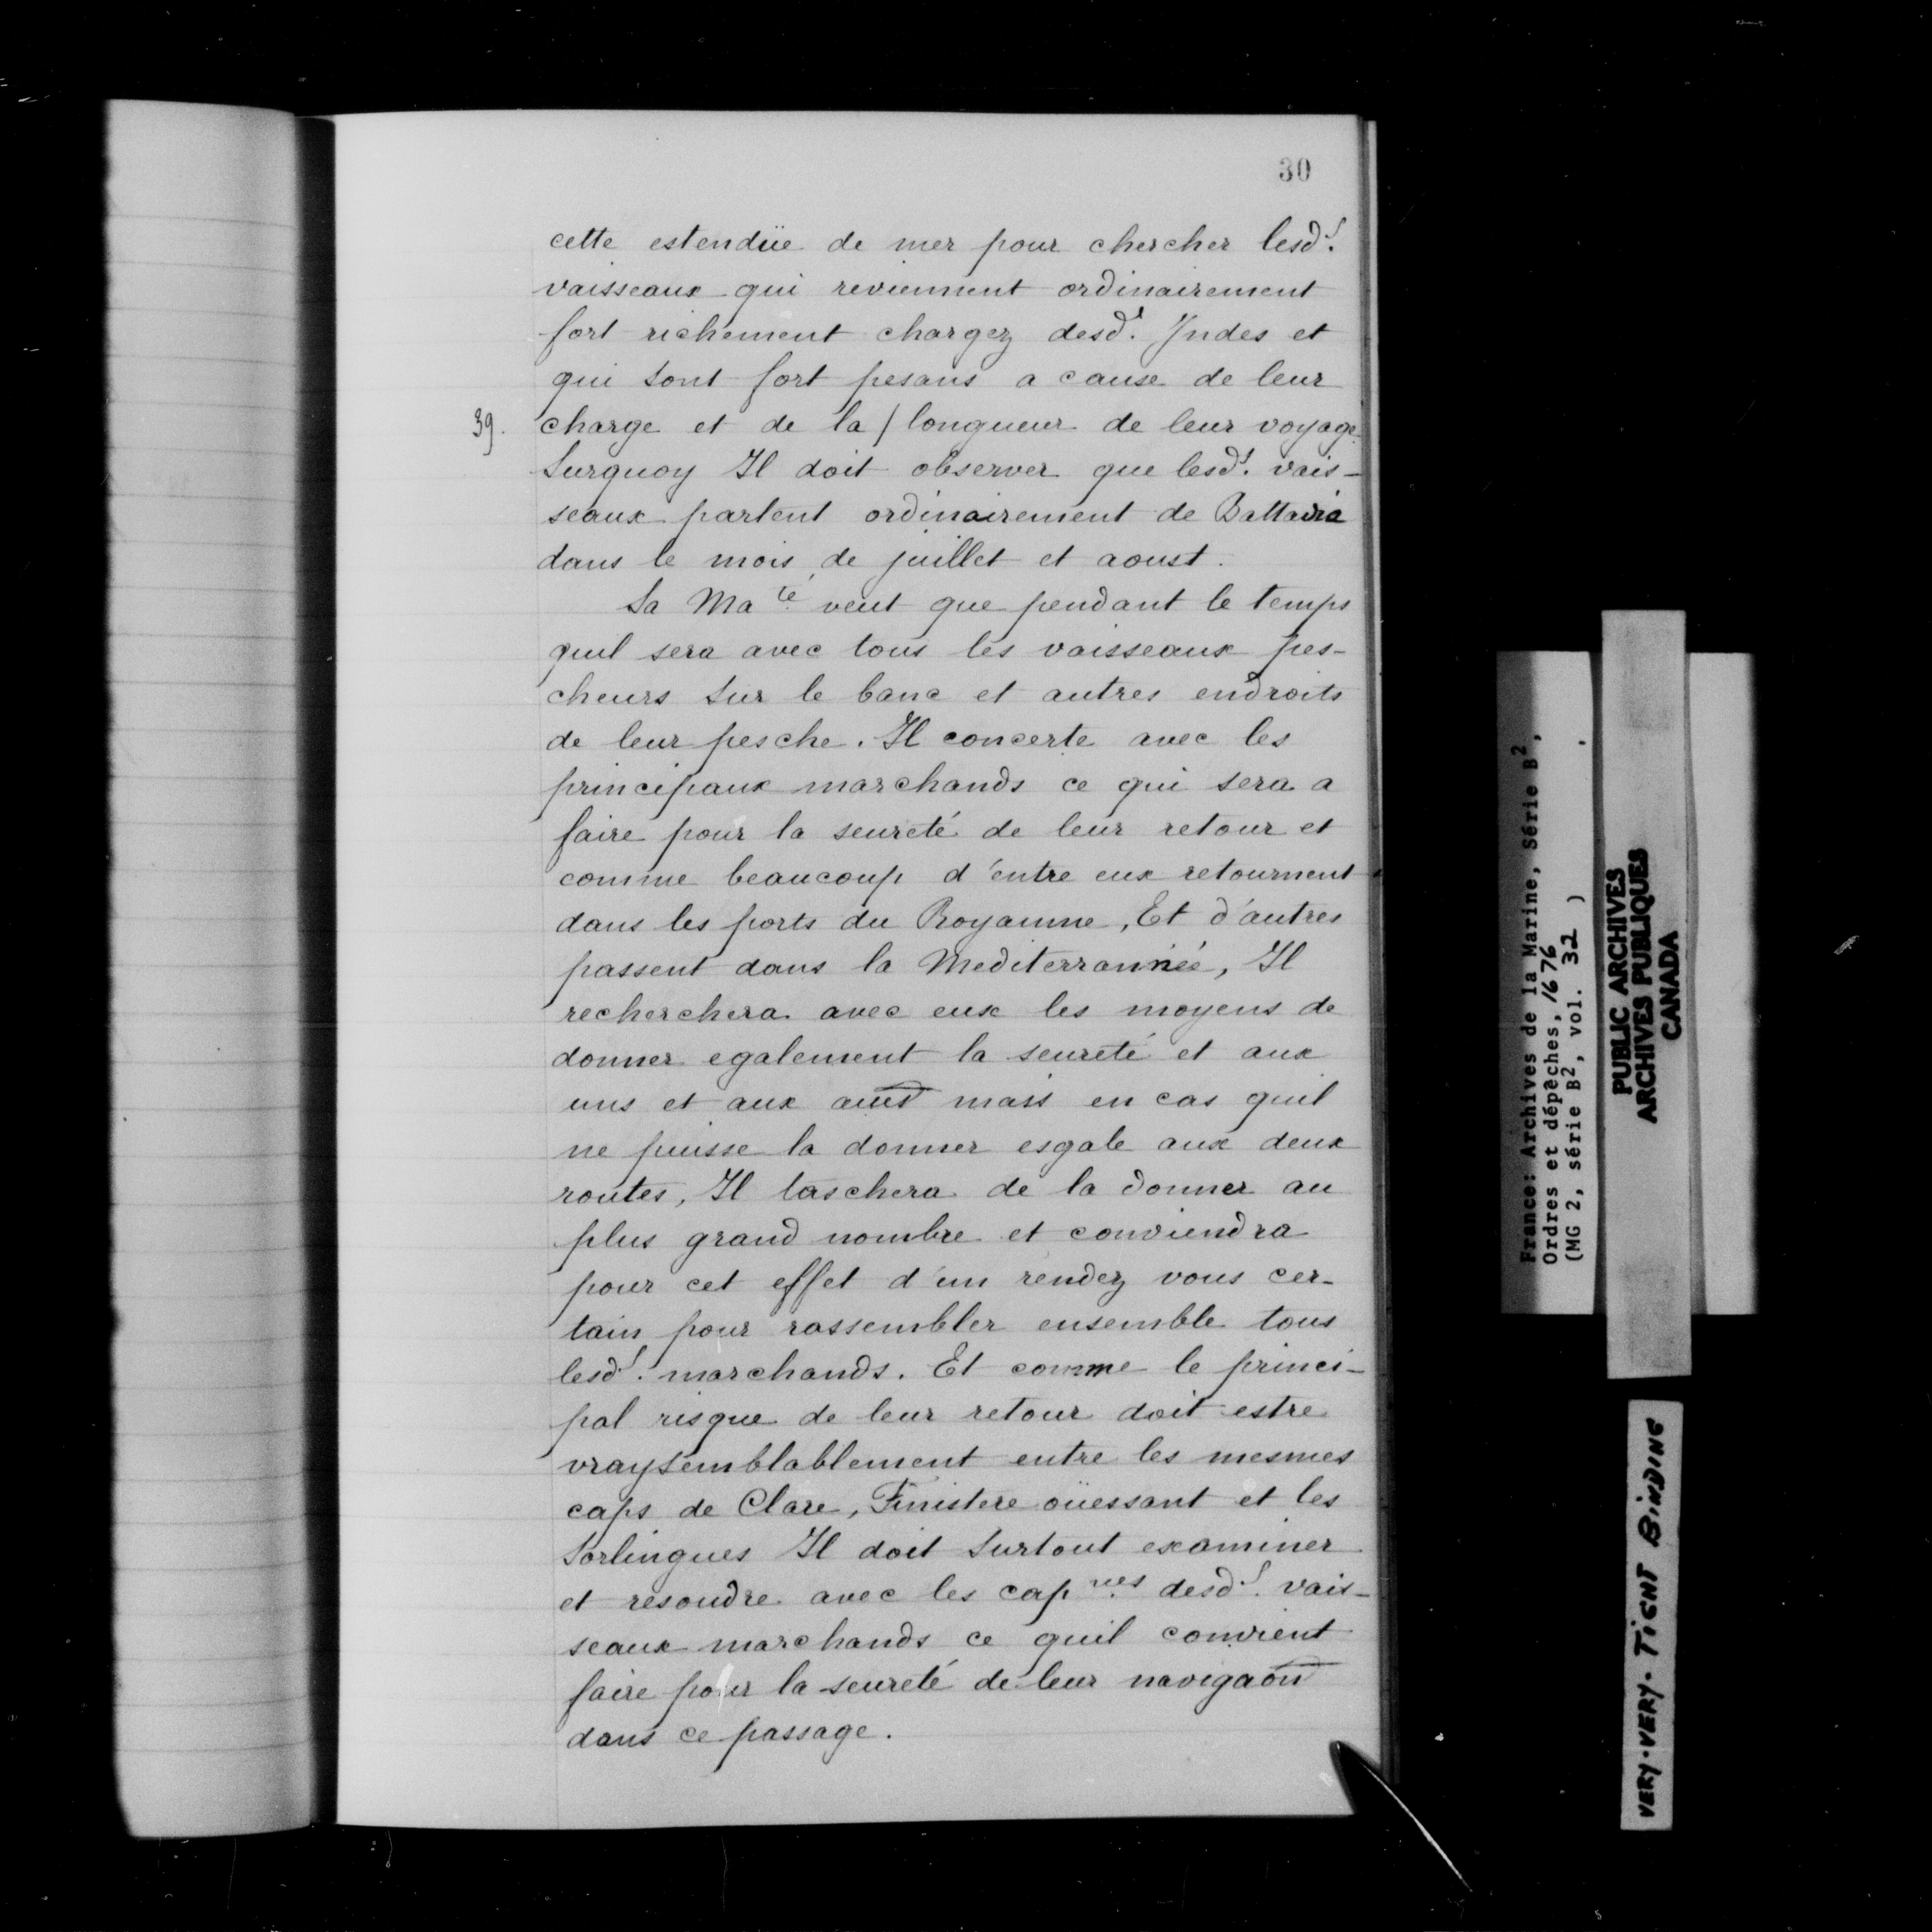 30
cette estendüe de mer pour chercher lesd.s
vaisseaux qui reviennent ordinairement
fort richement chargez desd.s Jndes et
qui sont fort pesans a cause de leur
39. charge et de la / longueur de leur voyage.
Surquoy Il doit observer que lesd.s vais-
seaux partent ordinairement de Battavia
dans le mois de juillet et aoust.
Sa Ma.té veut que pendant le temps
quil sera avec tous les vaisseaux pes-
cheurs sur le banc et autres endroits
de leur pesche. Il concerte avec les
principaux marchands ce qui sera a
faire pour la seureté de leur retour et
comme beaucoup d'entre eux retournent
dans les ports du Royaume, Et d'autres
passent dans la Mediterrannée, Il
recherchera avec eux les moyens de
donner egalement la seureté et aux
uns et aux aũes mais en cas quil
ne puisse la donner esgale aux deux
routes, Il taschera de la donner au
plus grand nombre et conviendra
pour cet effet d'un rendez vous cer-
tain pour rassembler ensemble tous
lesd.s marchands. Et comme le princi-
pal risque de leur retour doit estre
vraysemblablement entre les mesmes
caps de Clare, Finistere oüessant et les
Sorlingues Il doit surtout examiner
et resoudre avec les cap.nes desd.s vais-
seaux marchands ce quil convient
faire pour la seureté de leur navigaõn
dans ce passage.
France: Archives de la Marine, Série B²,
Ordres et dépêches, 1676 .
(MG 2, série B², vol. 32 )
PUBLIC ARCHIVES
ARCHIVES PUBLIQUES
CANADA
VERY-VERY-TIGHT BINDING